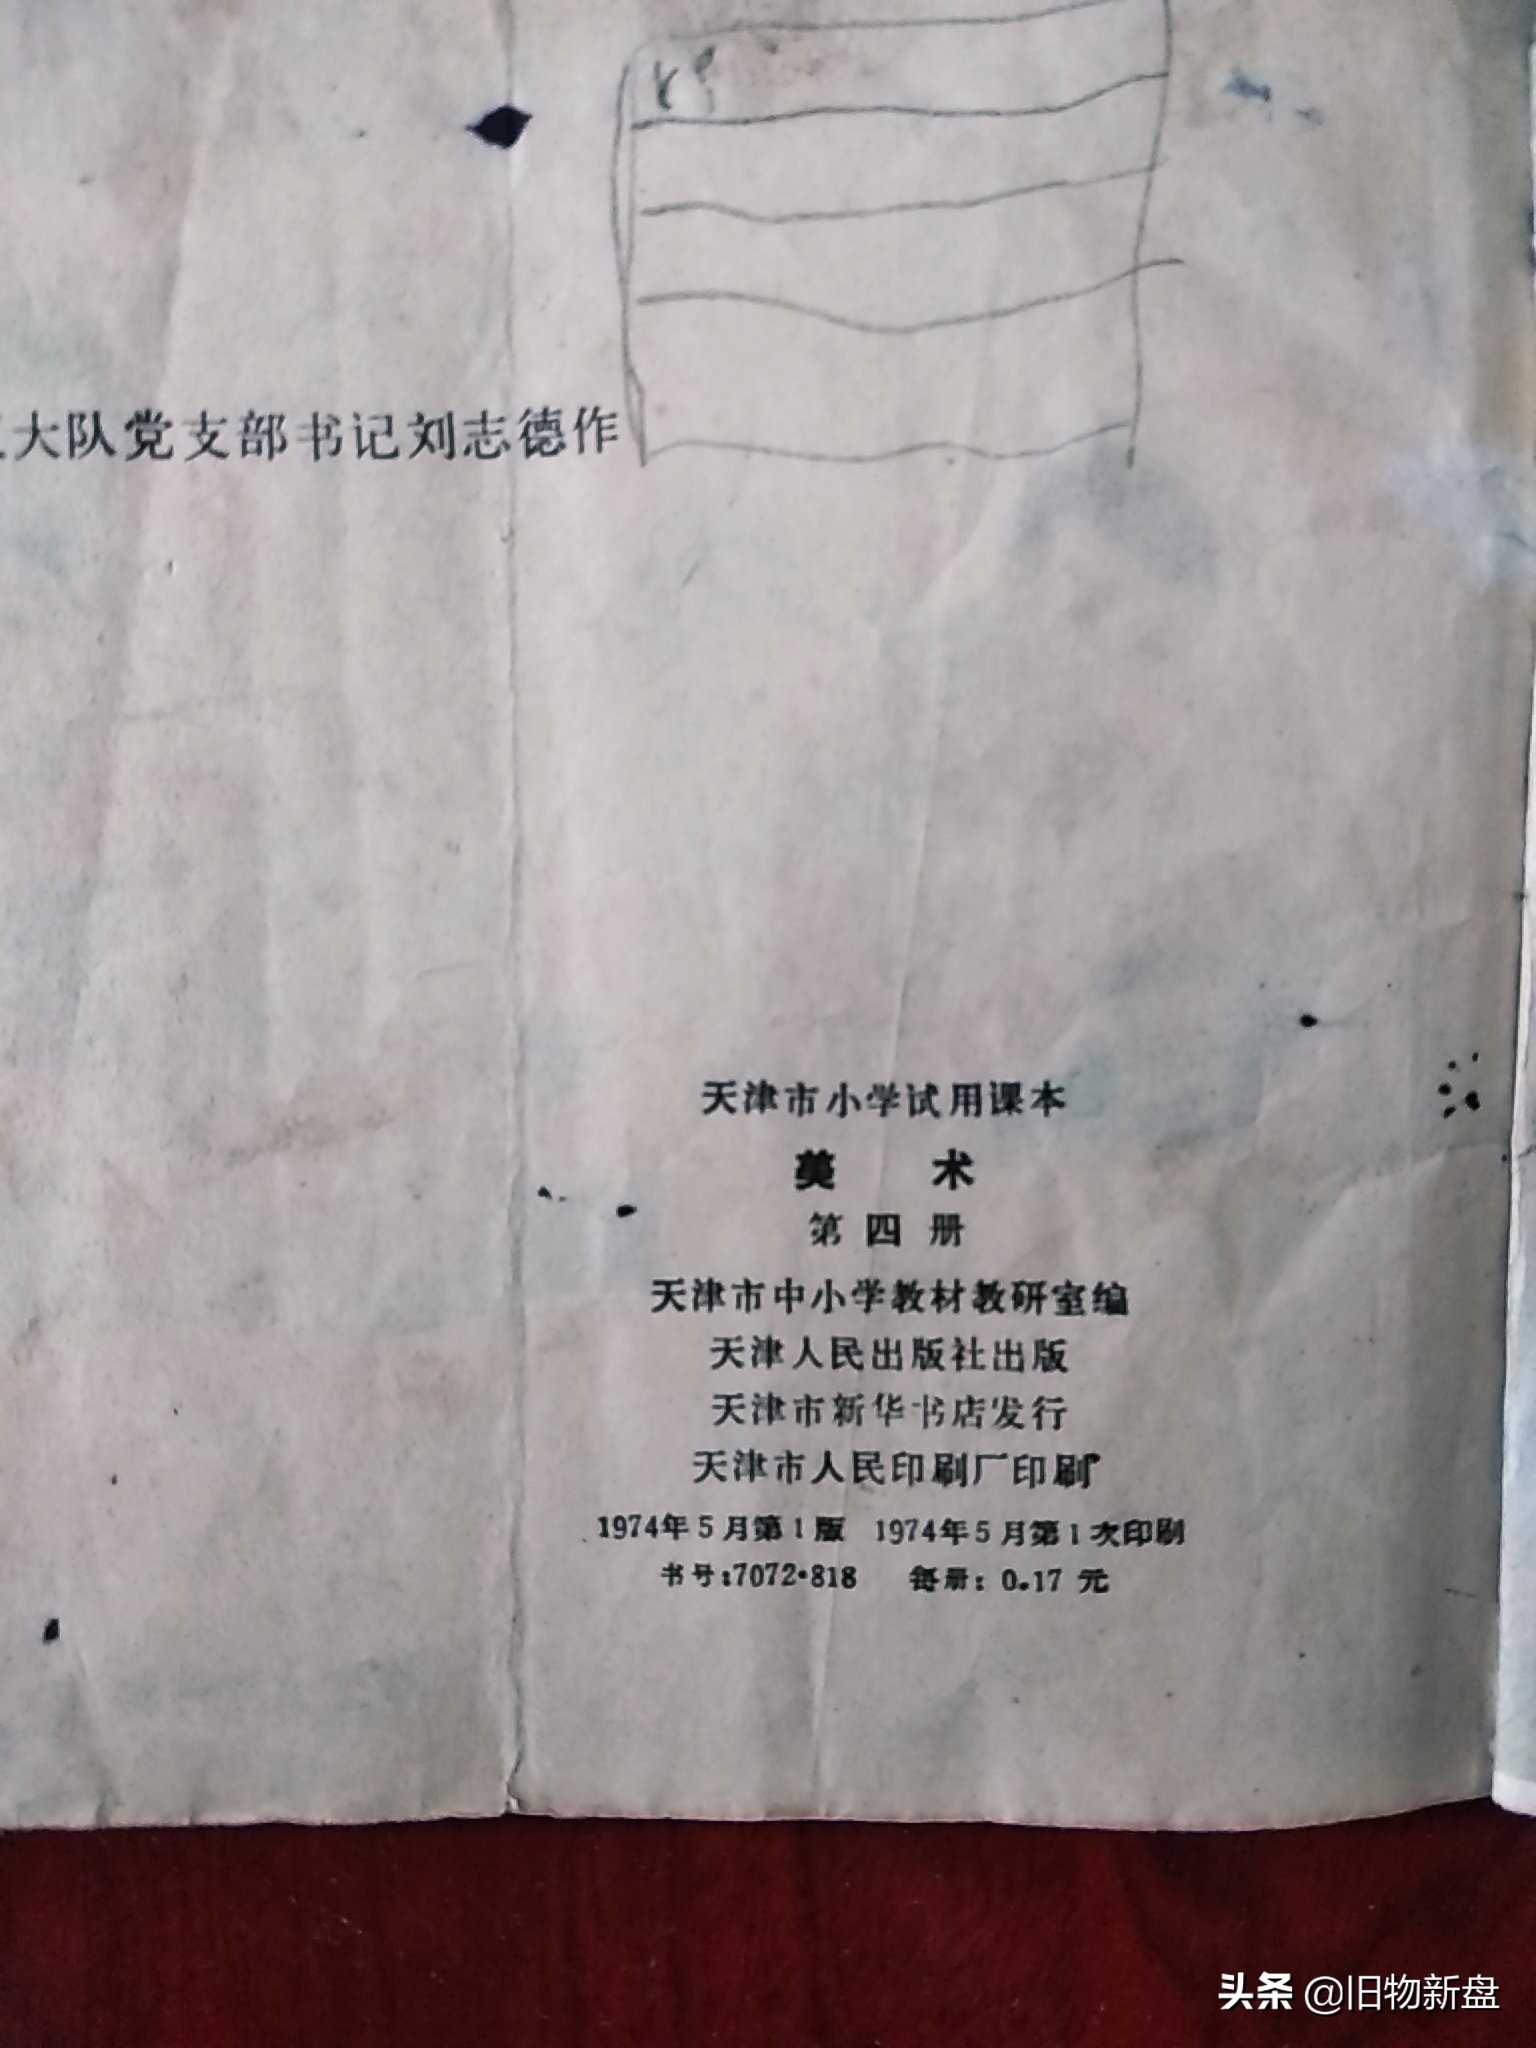 大队党支部书记刘志德作
天津市小学试用课本
美 术
第四册
天津市中小学教材教研室编
天津人民出版社出版
天津市新华书店发行
天津市人民印刷厂印刷
1974年5月第1版 1974年5月第1次印刷
书号:7072·818 每册: 0.17 元
头条 @旧物新盘